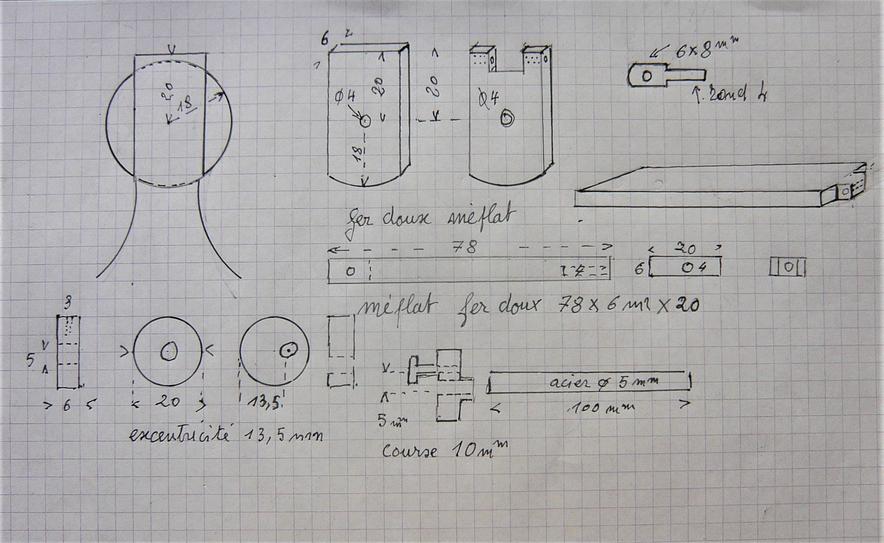 6
20
18
Ø4
20
20
18
Ø4
6x8 mm
rond 4
fer doux méflat
78
20
6
04
méflat fer doux 78 x 6 m x 20
3
5
6 5
20
13,5
excentricité 13,5 mm
5 mm
acier Ø 5 mm
100 mm
course 10 mm